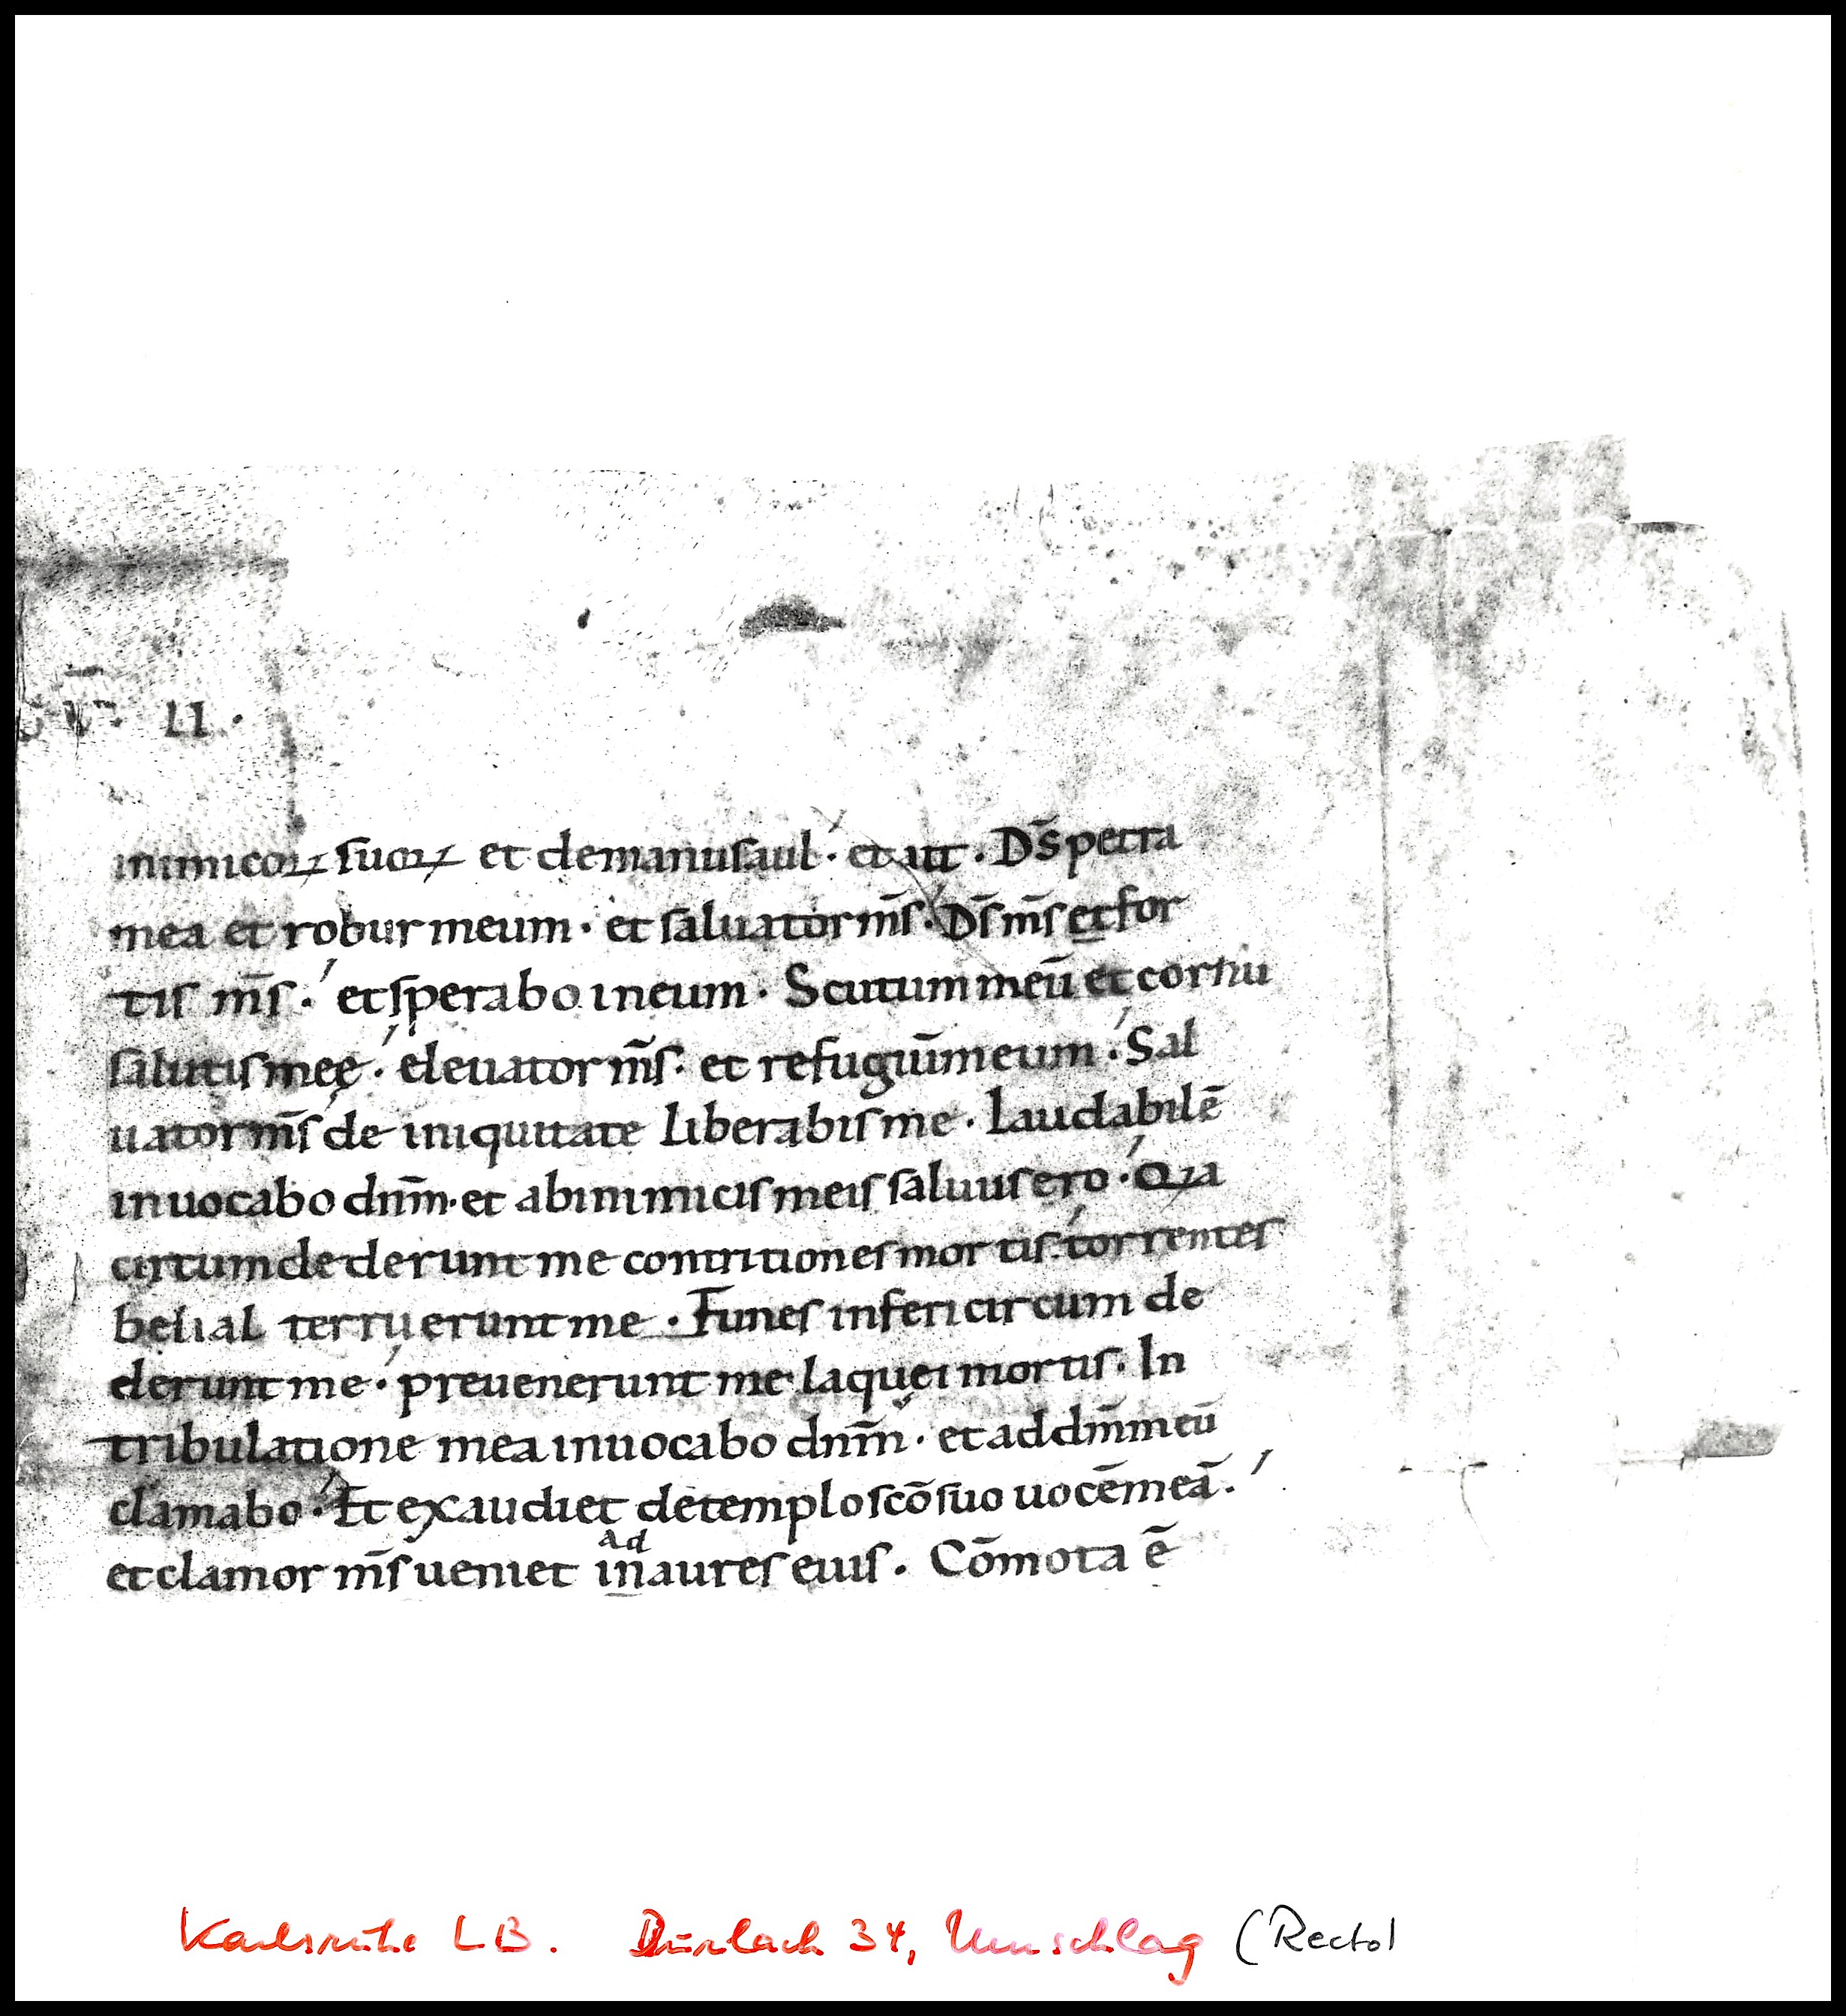 II.
inimicoꝝ suoꝝ et demanusaul. et ait. Ds̄ petra
mea et robur meum. et saluator m̄s. Ds̄ m̄s et for
tis m̄s. et sperabo ineum. Scutum meū et cornu
salutis meę. eleuator m̄s. et refugiūmeum. Sal
uator m̄s de iniquitate liberabis me. laudabilē
inuocabo dnm̄. et abinimicis meis saluus ero. Quia
circumdederunt me contritiones mortis. torrentes
belial terruerunt me. Funes inferi circum de
derunt me. preuenerunt me laquei mortis. In
tribulatione mea inuocabo dnm̄. et ad dm̄ meū
clamabo. Et exaudiet detemplo scō suo uocē meā.
et clamor m̄s ueniet in aures eius. Cōmota ē
Ad
Karlsruhe LB. Durlach 34, Umschlag (Recto)